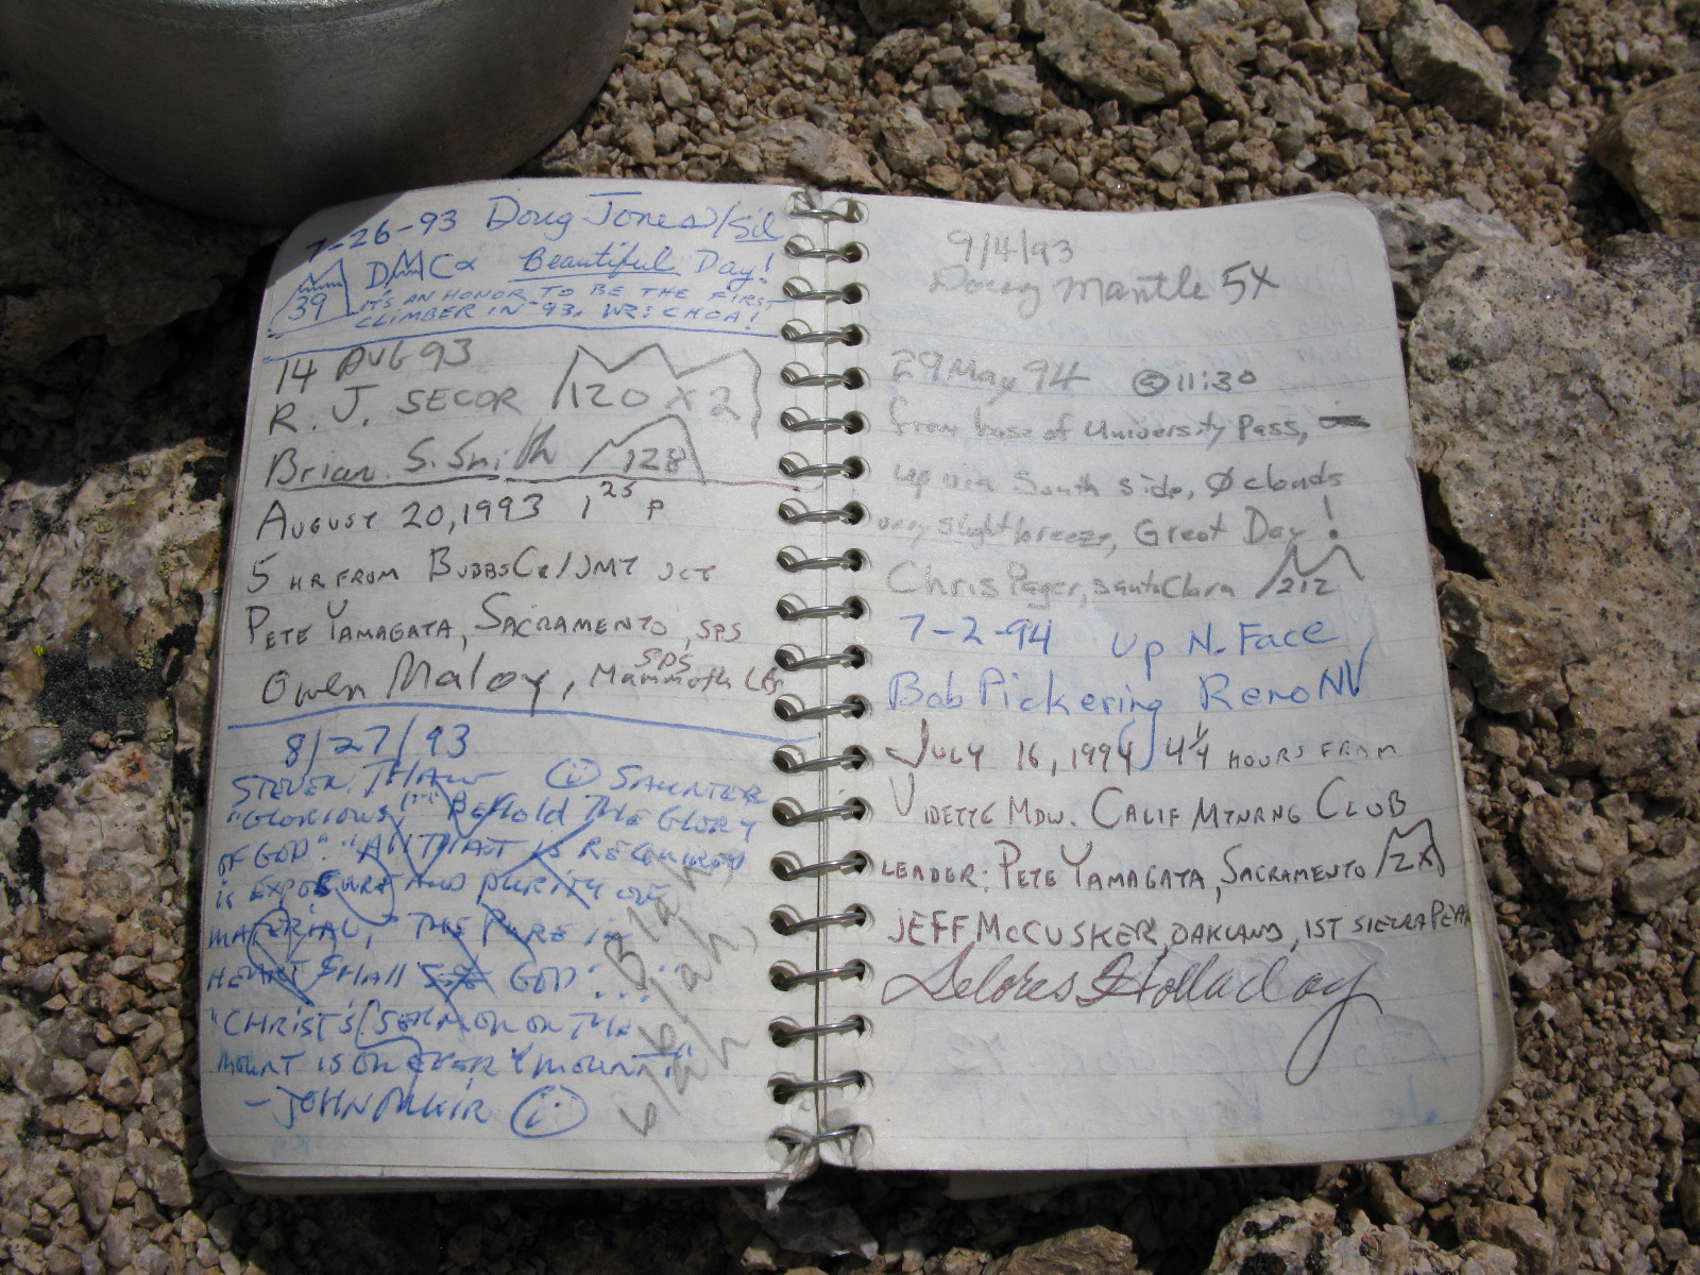 7-26-93 Doug Jones/Sil
39 DMC Beautiful Day!
IT'S AN HONOR TO BE THE FIRST
CLIMBER IN '93.
14 AUG 93
R. J. SECOR 120 x 2
Brian S. Smith 128
AUGUST 20, 1993 1 25 P
5 HR FROM BUBBS CR/JMT JCT
PETE YAMAGATA, SACRAMENTO, SPS
SPS
Owen Maloy, Mammoth
8/27/93
STEVEN SAUNTER
"GLORIOUS BEHOLD THE GLORY
OF GOD." "All THAT IS REQUIRED
is EXPOSURE AND PURITY OF
MATERIAL," "THE PURE in
HEART SHAll SEE GOD"...
"CHRIST'S SERMON ON THE
MOUNT IS ON EVERY MOUNT."
- JOHN MUIR
Blah,
blah,
blah
9/4/93
Doug Mantle 5X
29 May 94 @ 11:30
from base of University Pass,
up via South side, Ø clouds
very slight breeze, Great Day!
Chris Pager, Santa Clara 212
7-2-94 Up N. Face
Bob Pickering Reno NV
JULY 16, 1994 4 1/4 HOURS FROM
VIDETTE MDW. CALIF MTNRNG CLUB
LEADER: PETE YAMAGATA, SACRAMENTO 2X
JEFF McCUSKER, OAKLAND, 1ST SIERRA PEAK
Delores Holladay